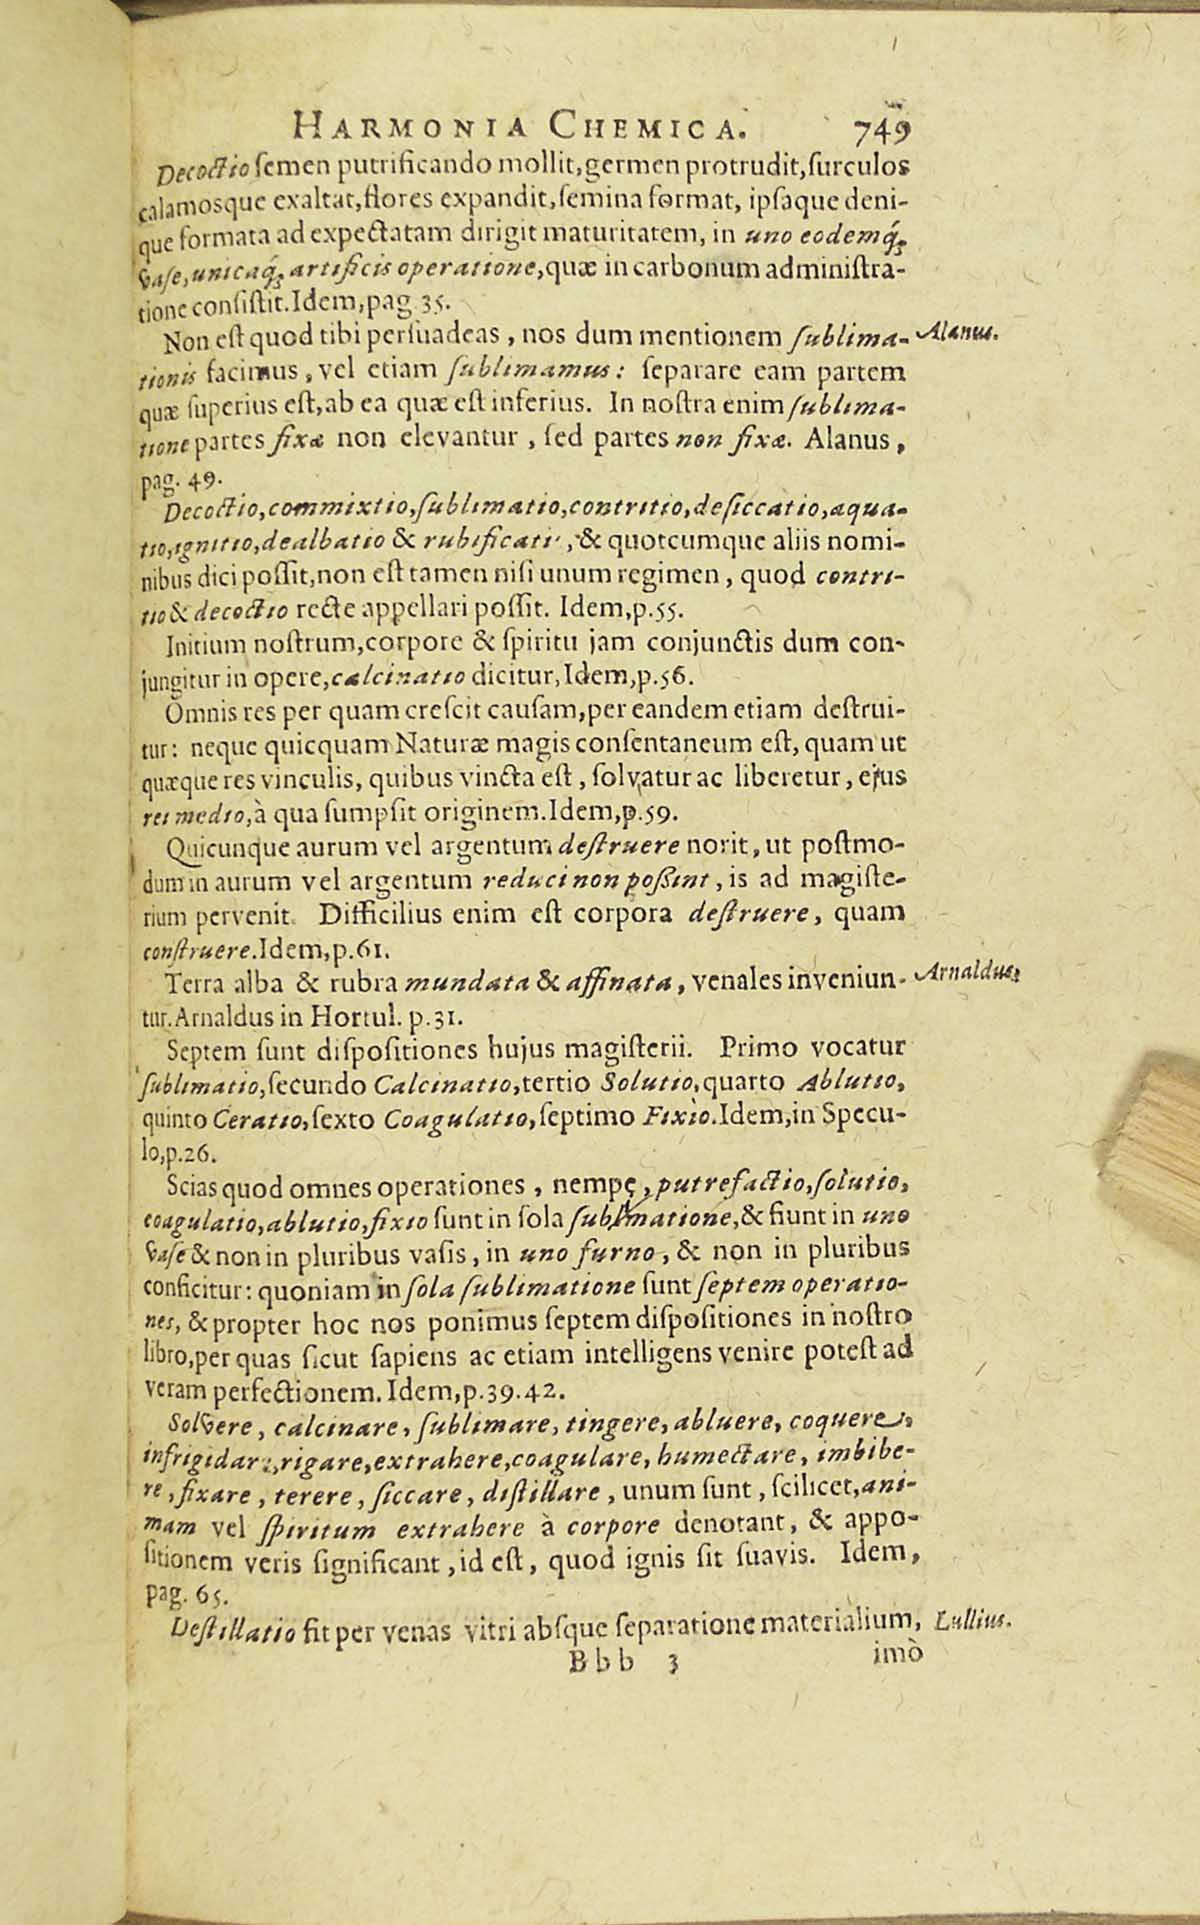 HARMONIA CHEMICA. 749
Decoctio semen putrificando mollit, germen protrudit, surculos
calamosque exaltat, flores expandit, semina format, ipsaque deni-
que formata ad expectatam dirigit maturitatem, in uno eodemq́;
vase, unicaq́; artificis operatione, quæ in carbonum administra-
tione consistit. Idem, pag. 35.
Non est quod tibi persuadeas, nos dum mentionem sublima- Alanus.
tionis facimus, vel etiam sublimamus: separare eam partem
quæ superius est, ab ea quæ est inferius. In nostra enim sublima-
tione partes fixæ non elevantur, sed partes non fixæ. Alanus,
pag. 49.
Decoctio, commixtio, sublimatio, contritio, desiccatio, aqua-
tio, ignitio, dealbatio & rubificati, & quotcumque aliis nomi-
nibus dici possit, non est tamen nisi unum regimen, quod contri-
tio & decoctio recte appellari possit. Idem, p. 55.
Initium nostrum, corpore & spiritu jam conjunctis dum con-
jungitur in opere, calcinatio dicitur, Idem, p. 56.
Omnis res per quam crescit causam, per eandem etiam destrui-
tur: neque quicquam Naturæ magis consentaneum est, quam ut
quæque res vinculis, quibus vincta est, solvatur ac liberetur, ejus
rei medio, à qua sumpsit originem. Idem, p. 59.
Quicunque aurum vel argentum destruere norit, ut postmo-
dum in aurum vel argentum reduci non possint, is ad magiste-
rium pervenit. Difficilius enim est corpora destruere, quam
construere. Idem, p. 61.
Terra alba & rubra mundata & affinata, venales inveniun- Arnaldus.
tur. Arnaldus in Hortul. p. 31.
Septem sunt dispositiones hujus magisterii. Primo vocatur
sublimatio, secundo Calcinatio, tertio Solutio, quarto Ablutio,
quinto Ceratio, sexto Coagulatio, septimo Fixio. Idem, in Specu-
lo, p. 26.
Scias quod omnes operationes, nempe, putrefactio, solutio,
coagulatio, ablutio, fixio sunt in sola sublimatione, & fiunt in uno
vase & non in pluribus vasis, in uno furno, & non in pluribus
conficitur: quoniam in sola sublimatione sunt septem operatio-
nes, & propter hoc nos ponimus septem dispositiones in nostro
libro, per quas sicut sapiens ac etiam intelligens venire potest ad
veram perfectionem. Idem, p. 39. 42.
Solvere, calcinare, sublimare, tingere, abluere, coquere,
infrigidare, rigare, extrahere, coagulare, humectare, imbibe-
re, fixare, terere, siccare, distillare, unum sunt, scilicet, ani-
mam vel spiritum extrahere à corpore denotant, & appo-
sitionem veris significant, id est, quod ignis sit suavis. Idem,
pag. 65.
Destillatio fit per venas vitri absque separatione materialium, Lullius.
Bbb 3 imò